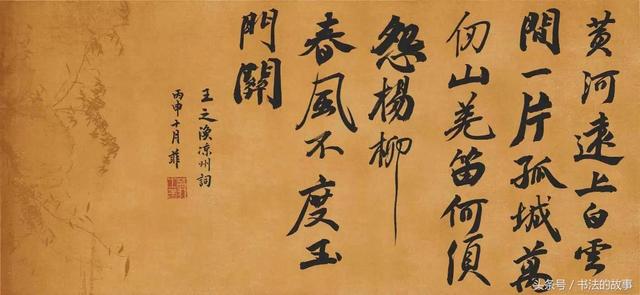 黄河遠上白雲
間一片孤城萬
仞山羌笛何須
怨楊柳
春風不度玉
門關
王之渙凉州詞
丙申十月菲
头条号 / 书法的故事